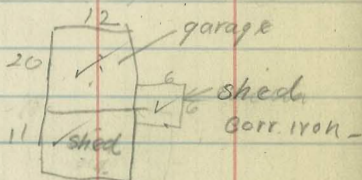 12
garage
20
6
shed
6
Corr. iron -
11
shed